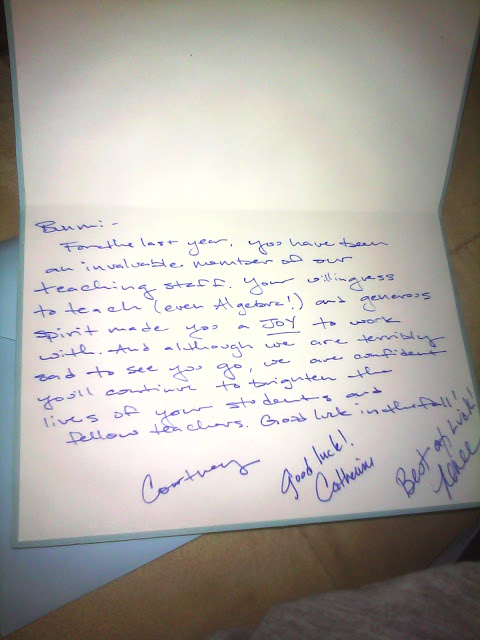 Bunmi -
For the last year, you have been
an invaluable member of our
teaching staff. Your willingness
to teach (even Algebra!) and generous
spirit made you a JOY to work
with. And although we are terribly
sad to see you go, we are confident
you'll continue to brighten the
lives of your students and
fellow teachers. Good luck in the fall!
Courtney
Good luck!
Catherine
Best of Luck!